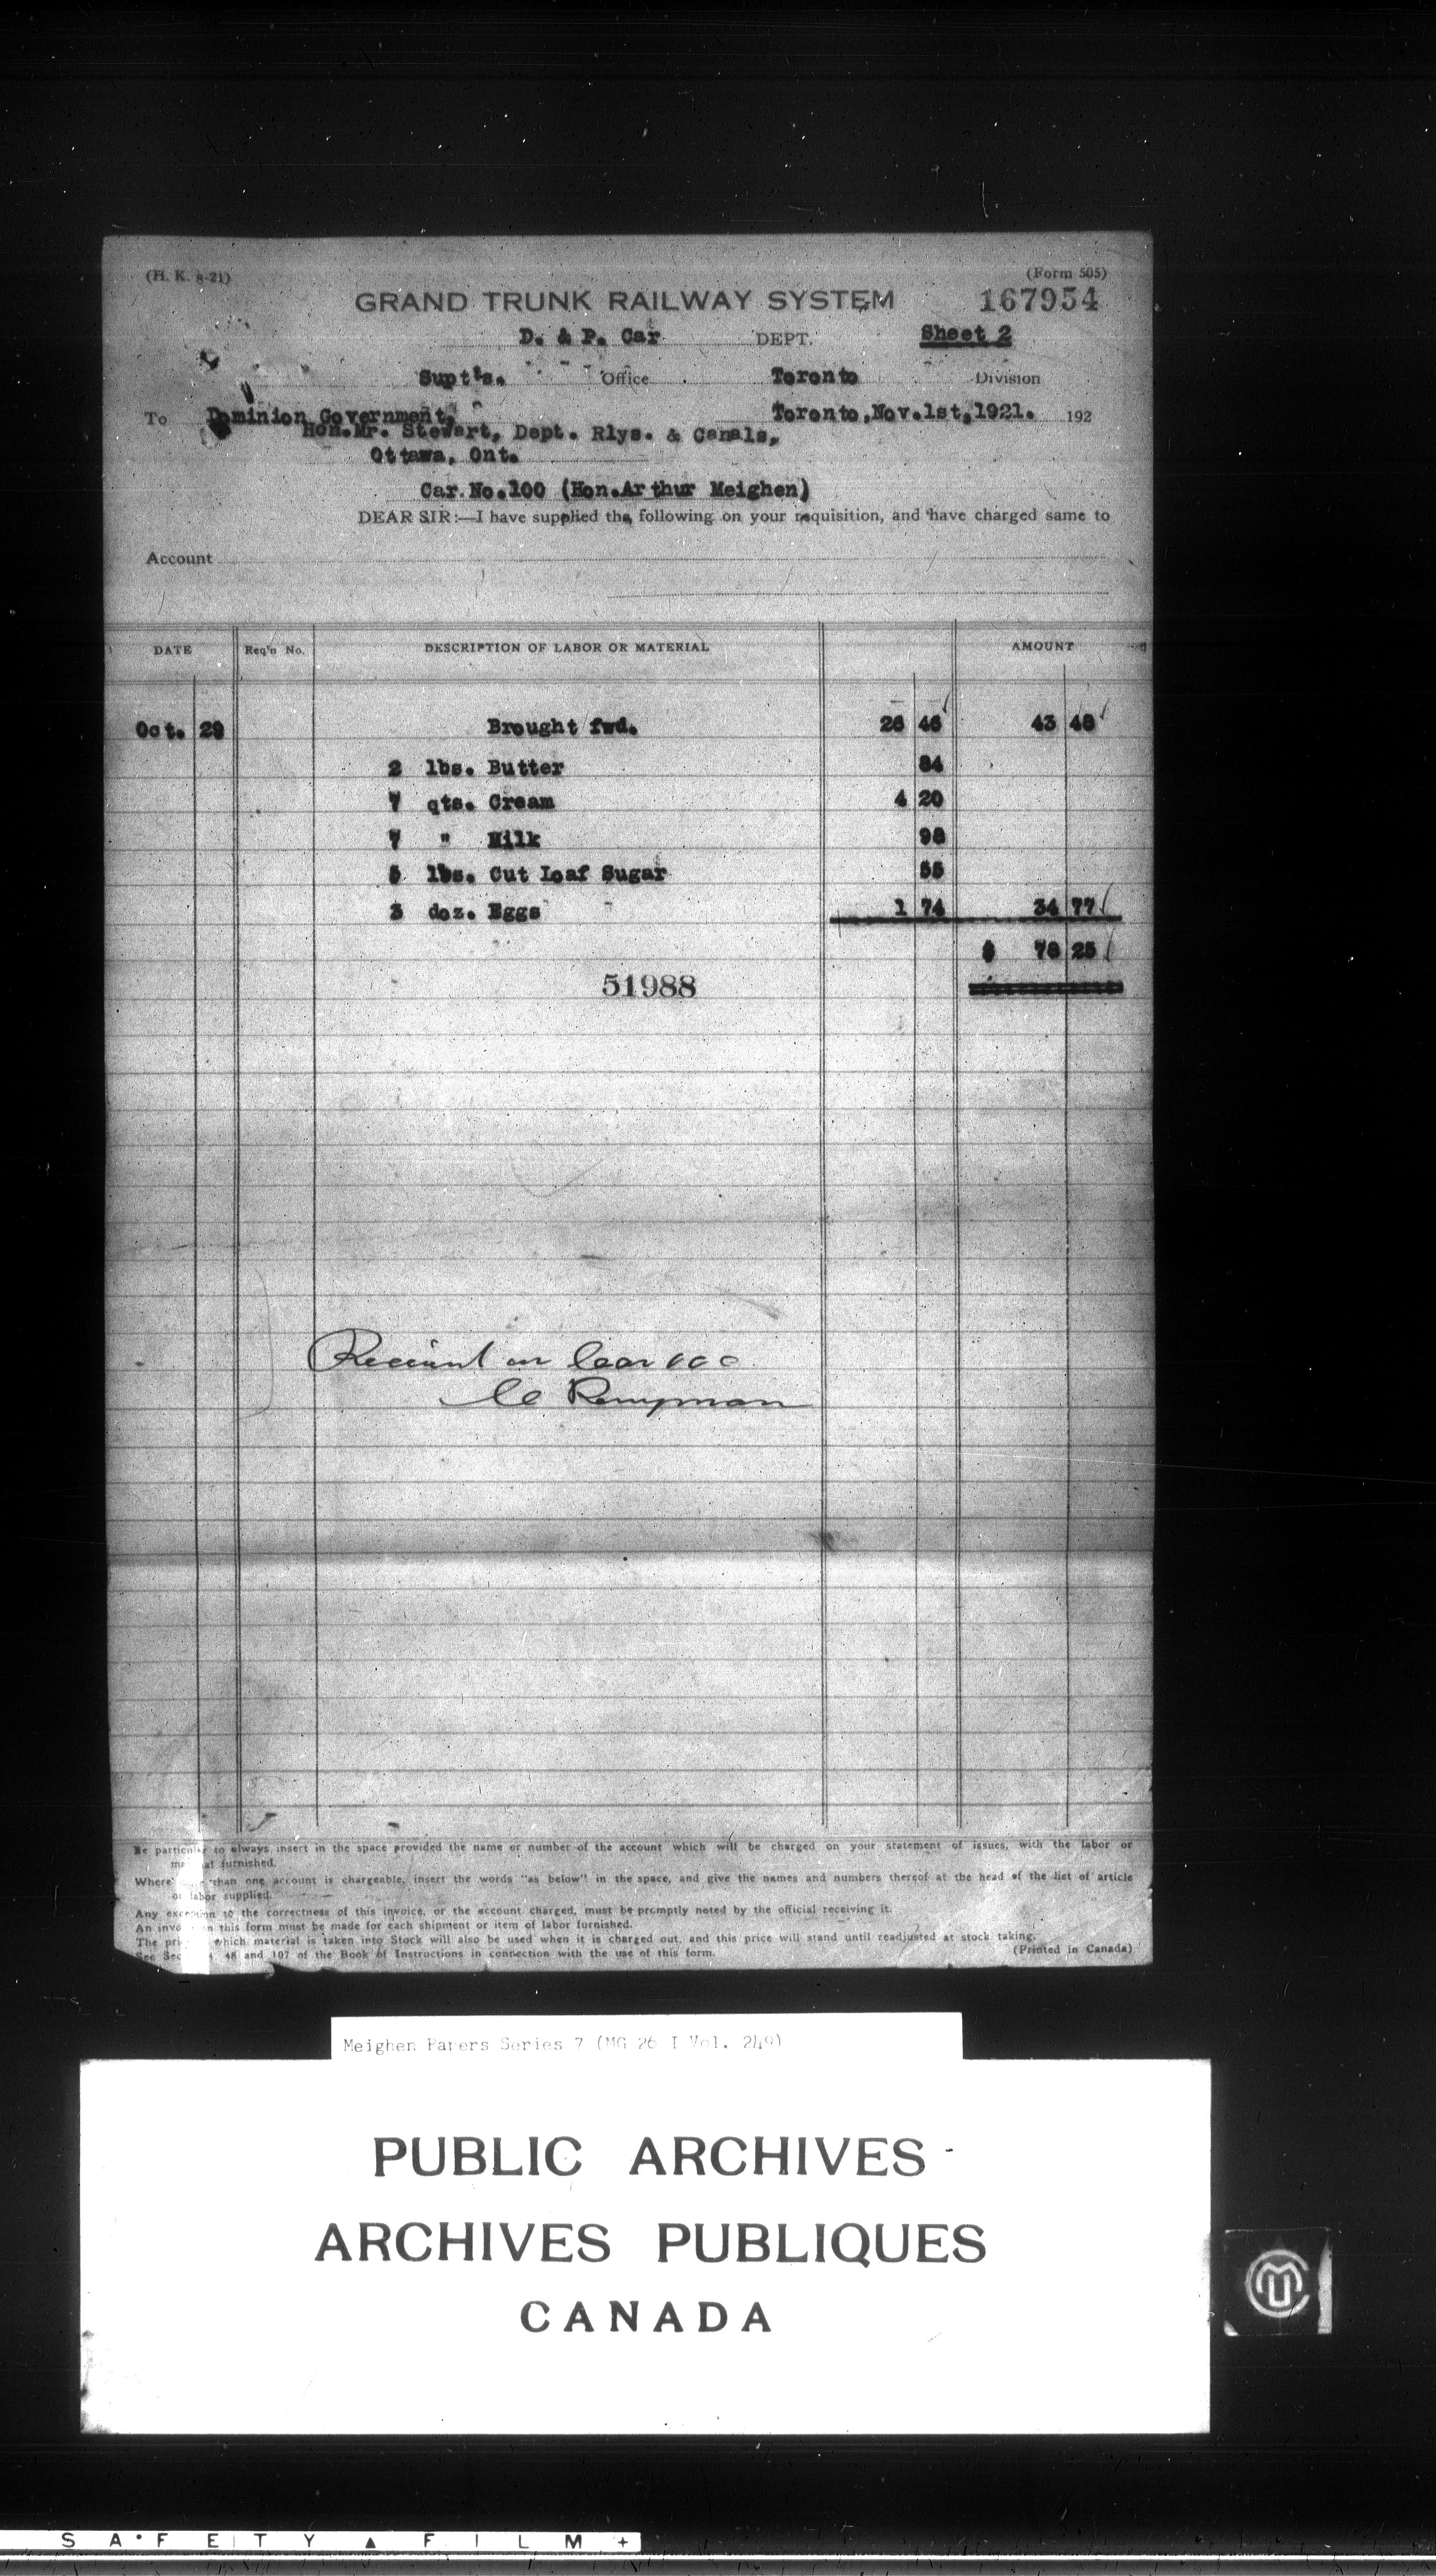 (H. K. 8-21)
(Form 505)
GRAND TRUNK RAILWAY SYSTEM 167954
D. & P. Car DEPT. Sheet 2
Supt's. Office Toronto Division
To Dominion Government, Toronto,Nov.1st,1921. 192
Hon.Mr. Stewart, Dept. Rlys. & Canals,
Ottawa, Ont.
Car.No.100 (Hon.Arthur Meighen)
DEAR SIR:—I have supplied the following on your requisition, and have charged same to
Account
DATE Req'n No. DESCRIPTION OF LABOR OR MATERIAL AMOUNT
Oct. 29 Brought fwd. 26 46 43 48
2 lbs. Butter 84
7 qts. Cream 4 20
7 " Milk 98
5 lbs. Cut Loaf Sugar 55
3 doz. Eggs 1 74 34 77
$ 78 25
51988
Received on Car 100
Be particular to always insert in the space provided the name or number of the account which will be charged on your statement of issues, with the labor or
furnished.
Where than one account is chargeable, insert the words "as below" in the space, and give the names and numbers thereof at the head of the list of article
or labor supplied.
Any exception to the correctness of this invoice, or the account charged, must be promptly noted by the official receiving it.
An invo on this form must be made for each shipment or item of labor furnished.
The pri which material is taken into Stock will also be used when it is charged out, and this price will stand until readjusted at stock taking.
See Sec 48 and 107 of the Book of Instructions in connection with the use of this form. (Printed in Canada)
Meighen Papers Series 7 (MG 26 I Vol. 249)
PUBLIC ARCHIVES
ARCHIVES PUBLIQUES
CANADA
SAFETY FILM